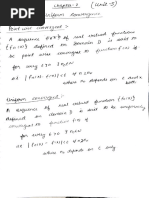 chapter-2 (Unit-5)
Uniform convergence
Point wise convergent :-
A sequence of real valued function
{fn(x)} defined on domain D is said to
be point wise convergent to function f(x) if
for every ε>0 ∃ n0∈N
| fn(x) - f(x) | < ε ∀ n≥n0
where n0 depends on ε and x both
Uniform convergent :-
A sequence of real valued function {fn(x)}
defined on domain D is said to be uniformly
convergent to function f(x) if
for every ε>0 ∃ n0∈N
| fn(x) - f(x) | < ε ∀ n≥n0
where n0 depends on ε only